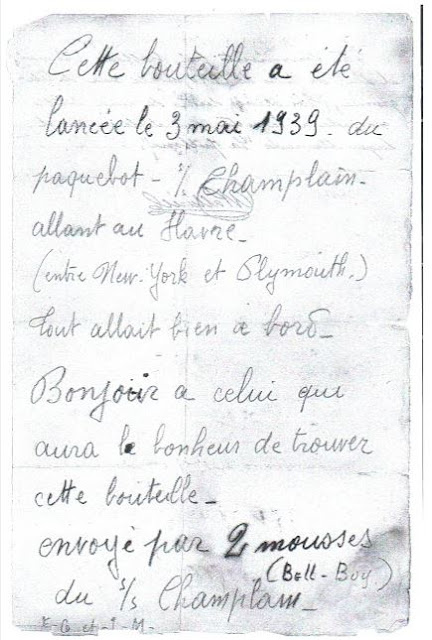 Cette bouteille a été
lancée le 3 mai 1939. du
paquebot - S/S Champlain -
allant au Havre -
(entre New-York et Plymouth.)
Tout allait bien à bord -
Bonjour a celui qui
aura le bonheur de trouver
cette bouteille -
envoyé par 2 mousses
(Bell-Boy)
du S/S Champlain -